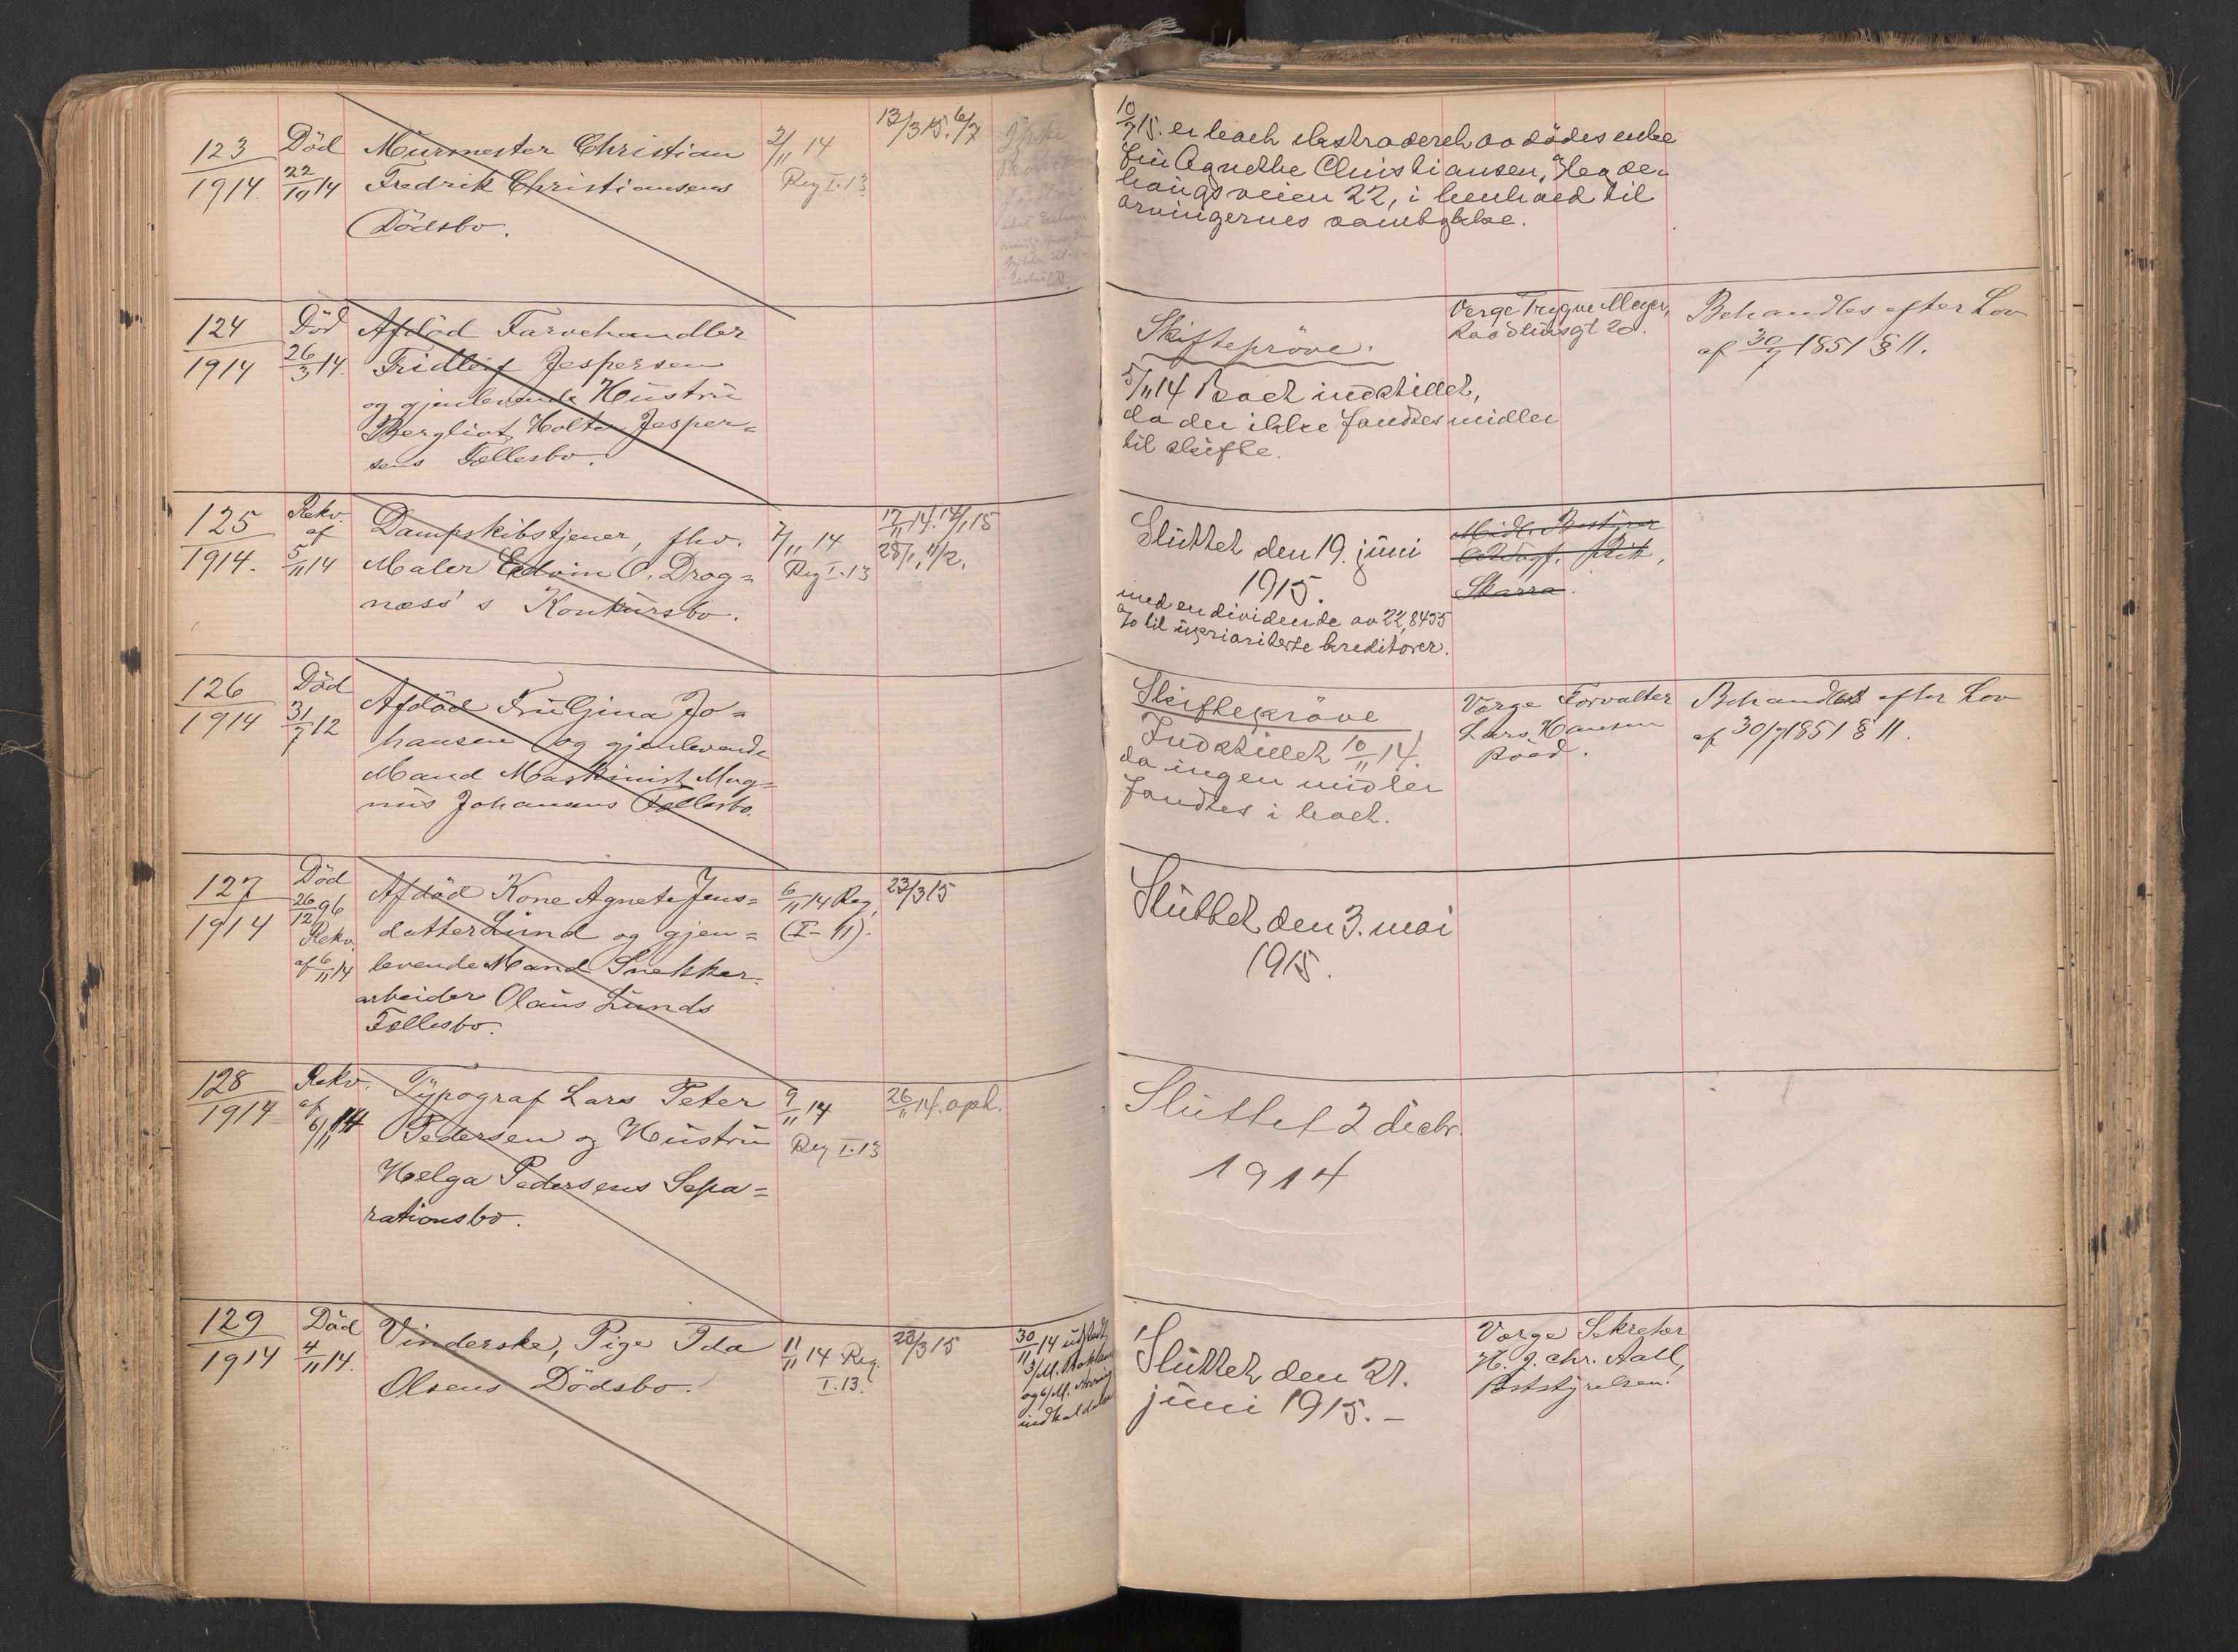 123
1914
Död
22/10 14
Murmester Christian
Fredrik Christiansens
Dödsbo.
2/11 14
Reg I. 13
13/3 15. 6/7
10/7 15. er boet ekstraderet av dödes enke
fru Agnethe Christiansen,
haugsveien 22, i henhold til
arvingernes samtykke.
124
1914
Död
26/3 14.
Afdöd Farvehandler
Fridleif Jespersen
og gjenlevende Hustru
Bergliot Holter Jesper=
sens Fællesbo.
Skifteprøve.
5/11 14 Boet indstillet,
da der ikke fandtes midler
til skifte.
Verge Trygve Meyer,
Raadhusgt 20.
Behandles efter Lov
af 30/7 1851 § 11.
125
1914.
Rekv.
af
5/11 14
Dampskibstjener, fhv.
Maler Edvin O. Drag=
næss's Konkursbo.
7/11 14
Reg I. 13
17/11 14. 14/1 15
28/1, 11/2.
Sluttet den 19. juni
1915.
med en dividende av 22,8455
% til upriariterte kreditorer.
Midl. Bestyrer
Skarra.
126
1914
Död
31/7 12
Afdöd Fru Gina Jo=
hansen og gjenlevende
Mand Maskinist Mag=
nus Johansens Fællesbo.
Skifteprøve
Indstillet 10/11 14.
da ingen midler
fandtes i boet.
Værge Forvalter
Lars Hansen
Behandles efter Lov
af 30/7 1851 § 11.
127
1914
Död
26/12 96
Rekv.
af 6/11 14
Afdöd Kone Agnete Jens=
datter Lund og gjen=
levende Mand Snekker=
arbeider Olaus Lunds
Fællesbo.
6/11 14 Reg.
(I- 11).
23/3 15
Sluttet den 3. mai
1915.
128
1914
Rekv.
af
6/11 14
Typograf Lars Peter
Pedersen og Hustru
Helga Pedersens Sepa=
rationsbo.
9/11 14
Reg I. 13
26/11 14. oph.
Sluttet 2 decbr.
1914
129
1914
Död
4/11 14.
Vinderske, Pige Ida
Olsens Dödsbo.
11/11 14 Reg.
I. 13.
23/3 15
30/11 14 udstedt
3/M. Proklama
og 6/M. Arving
indkaldelse
Sluttet den 21.
juni 1915. -
Værge Sekretær
H. J. Chr. Aall,
Poststyrelsen.